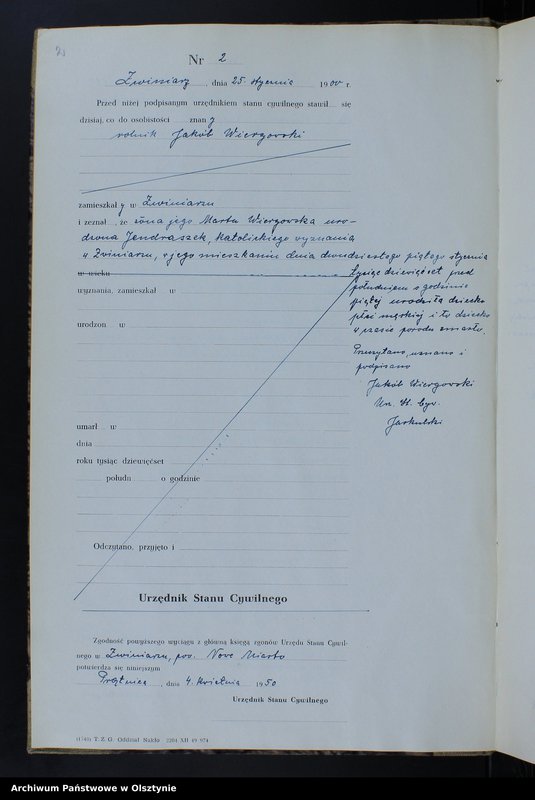 Nr 2
Zwiniarz, dnia 25 stycznia 1900 r.
Przed niżej podpisanym urzędnikiem stanu cywilnego stawił się
dzisiaj, co do osobistości znany
rolnik Jakób Wiergowski
zamieszkały w Zwiniarzu
i zeznał, że żona jego Marta Wiergowska uro-
dzona Jendraszek, katolickiego wyznania
w Zwiniarzu, w jego mieszkaniu dnia dwudziestego piątego stycznia
w wieku
tysiąc dziewięćset przed
wyznania, zamieszkał w
południem o godzinie
piątej urodziła dziecko
płci męskiej i to dziecko
urodzon w
w czasie porodu zmarło.
Przeczytano, uznano i
podpisano
Jakób Wiergowski
Urz. St. Cyw.
umarł w
dnia
roku tysiąc dziewięćset
połudn o godzinie
Odczytano, przyjęto i
Urzędnik Stanu Cywilnego
Zgodność powyższego wyciągu z główną księgą zgonów Urzędu Stanu Cywil-
nego w Zwiniarzu, pow. Nowe Miasto
potwierdza się niniejszym
dnia 4 kwietnia 1950
Urzędnik Stanu Cywilnego
(1740) T. Z. G. Oddział Nakło 2204 XII 49 974
Archiwum Państwowe w Olsztynie